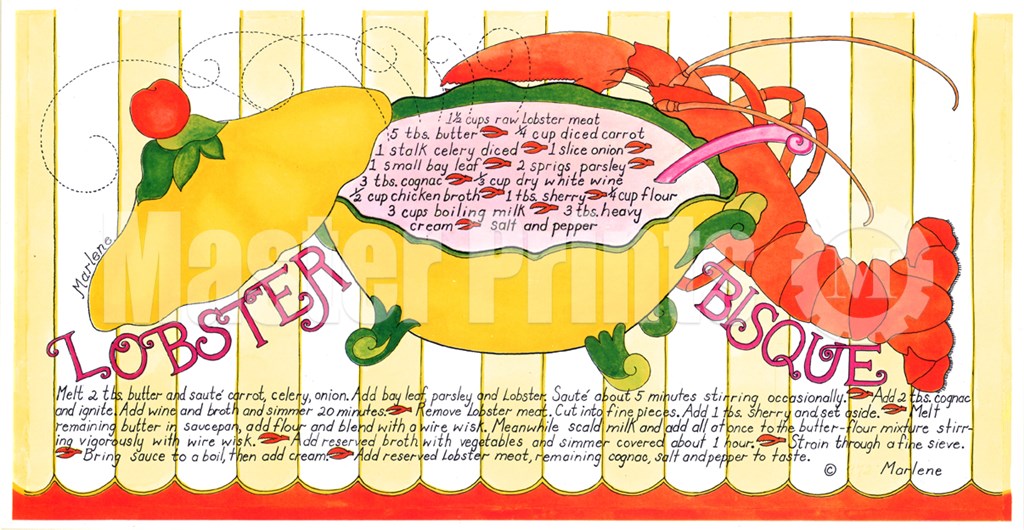 1½ cups raw lobster meat
5 tbs. butter ¼ cup diced carrot
1 stalk celery diced 1 slice onion
1 small bay leaf 2 sprigs parsley
3 tbs. cognac ⅓ cup dry white wine
½ cup chicken broth 1 tbs. sherry ¼ cup flour
3 cups boiling milk 3 tbs. heavy
cream salt and pepper
Marlene
Master Prints M
LOBSTER BISQUE
Melt 2 tbs. butter and sauté carrot, celery, onion. Add bay leaf, parsley and Lobster. Sauté about 5 minutes stirring, occasionally. Add 2 tbs. cognac
and ignite. Add wine and broth and simmer 20 minutes. Remove Lobster meat. Cut into fine pieces. Add 1 tbs. sherry and set aside. Melt
remaining butter in saucepan, add flour and blend with a wire wisk. Meanwhile scald milk and add all at once to the butter-flour mixture stirr-
ing vigorously with wire wisk. Add reserved broth with vegetables and simmer covered about 1 hour. Strain through a fine sieve.
Bring sauce to a boil, then add cream. Add reserved Lobster meat, remaining cognac, salt and pepper to taste.
© Marlene